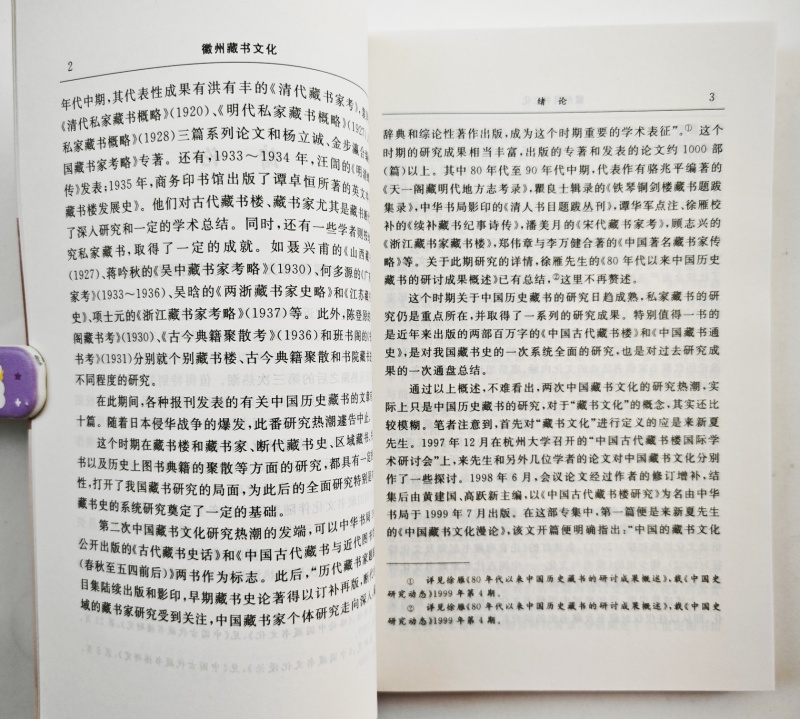 徽州藏书文化
2
年代中期，其代表性成果有洪有丰的《清代藏书家考》，
《清代私家藏书概略》(1920)、《明代私家藏书概略》(1927)、
私家藏书概略》(1928)三篇系列论文和杨立诚、金步瀛合
国藏书家考略》专著。还有，1933～1934年，汪訚的《明
传》发表；1935年，商务印书馆出版了谭卓恒所著的英文本
藏书楼发展史》。他们对古代藏书楼、藏书家尤其是藏书
了深入研究和一定的学术总结。同时，还有一些学者则
究私家藏书，取得了一定的成就。如聂兴甫的《山西藏
(1927)、蒋吟秋的《吴中藏书家考略》(1930)、何多源的《广
家考》(1933～1936)、吴晗的《两浙藏书家史略》和《江苏藏
史》、项士元的《浙江藏书家考略》(1937)等。此外，陈登原
阁藏书考》(1930)、《古今典籍聚散考》(1936)和班书阁的《书
书考》(1931)分别就个别藏书楼、古今典籍聚散和书院藏书
不同程度的研究。
在此期间，各种报刊发表的有关中国历史藏书的文章
十篇。随着日本侵华战争的爆发，此番研究热潮遽告中止。
这个时期在藏书楼和藏书家、断代藏书史、区域藏书、
书以及历史上图书典籍的聚散等方面的研究，都具有一定
性，打开了我国藏书研究的局面，为此后的全面研究特别是
藏书史的系统研究奠定了一定的基础。
第二次中国藏书文化研究热潮的发端，可以中华书局
公开出版的《古代藏书史话》和《中国古代藏书与近代图书
(春秋至五四前后)》两书作为标志。此后，“历代藏书家
目集陆续出版和影印，早期藏书史论著得以订补再版，断
域的藏书家研究受到关注，中国藏书家个体研究走向深入，
绪论
3
辞典和综论性著作出版，成为这个时期重要的学术表征”。① 这个
时期的研究成果相当丰富，出版的专著和发表的论文约1000部
(篇)以上。其中80年代至90年代中期，代表作有骆兆平编著的
《天一阁藏明代地方志考录》，瞿良士辑录的《铁琴铜剑楼藏书题跋
集录》，中华书局影印的《清人书目题跋丛刊》，谭华军点注、徐雁校
补的《续补藏书纪事诗传》，潘美月的《宋代藏书家考》，顾志兴的
《浙江藏书家藏书楼》，郑伟章与李万健合著的《中国著名藏书家传
略》等。关于此期研究的详情，徐雁先生的《80年代以来中国历史
藏书的研讨成果概述》已有总结，②这里不再赘述。
这个时期关于中国历史藏书的研究日趋成熟，私家藏书的研
究仍是重点所在，并取得了一系列的研究成果。特别值得一书的
是近年来出版的两部百万字的《中国古代藏书楼》和《中国藏书通
史》，是对我国藏书史的一次系统全面的研究，也是对过去研究成
果的一次通盘总结。
通过以上概述，不难看出，两次中国藏书文化的研究热潮，实
际上只是中国历史藏书的研究，对于“藏书文化”的概念，其实还比
较模糊。笔者注意到，首先对“藏书文化”进行定义的应是来新夏
先生。1997年12月在杭州大学召开的“中国古代藏书楼国际学
术研讨会”上，来先生和另外几位学者的论文对中国藏书文化分别
作了一些探讨。1998年6月，会议论文经过作者的修订增补，结
集后由黄建国、高跃新主编，以《中国古代藏书楼研究》为名由中华
书局于1999年7月出版。在这部专集中，第一篇便是来新夏先生
的《中国藏书文化漫论》，该文开篇便明确指出：“中国的藏书文化
① 详见徐雁《80年代以来中国历史藏书的研讨成果概述》，载《中国史
研究动态》1999年第4期。
② 详见徐雁《80年代以来中国历史藏书的研讨成果概述》，载《中国史
研究动态》1999年第4期。